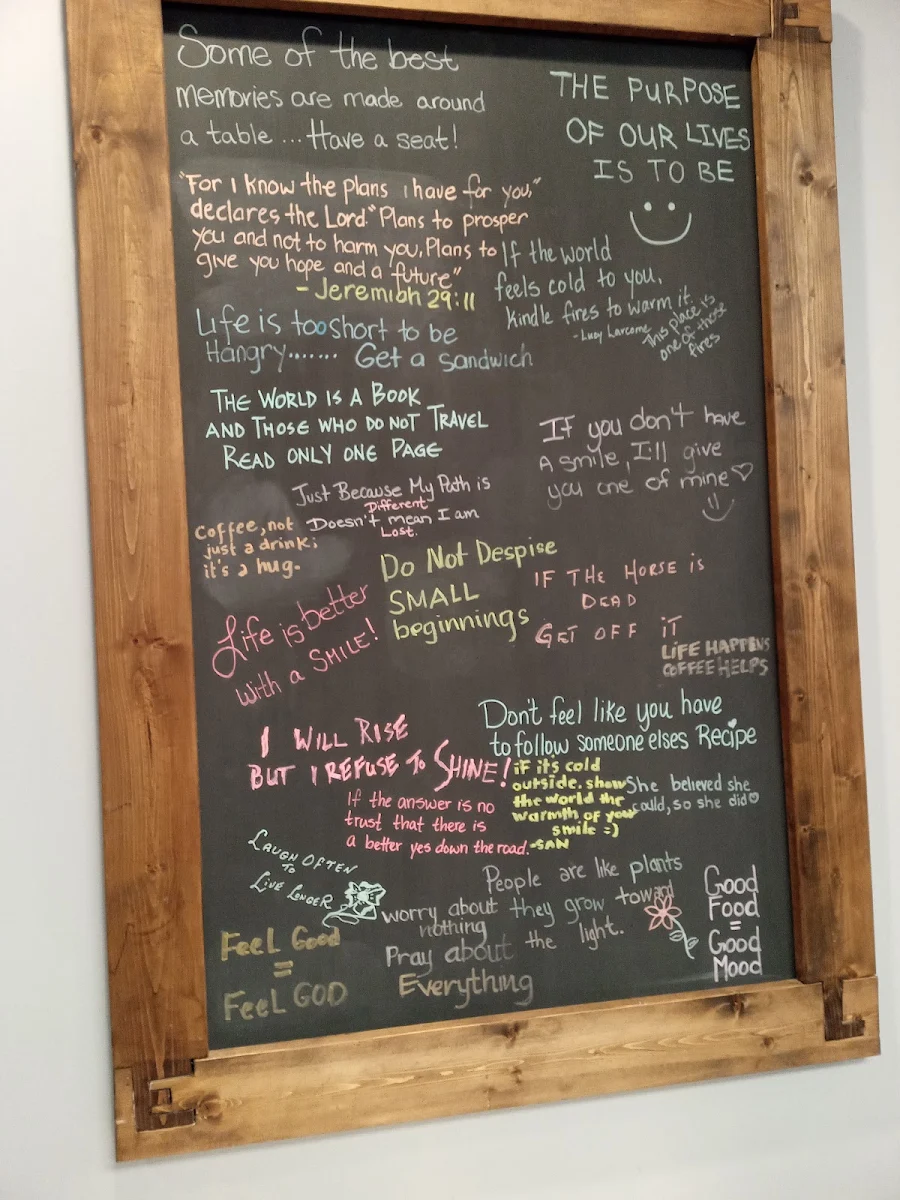 Some of the best
memories are made around
a table ... Have a seat!
THE PURPOSE
OF OUR LIVES
IS TO BE
"For I know the plans i have for you,"
declares the Lord." Plans to prosper
you and not to harm you, Plans to
give you hope and a future"
- Jeremiah 29:11
If the world
feels cold to you,
kindle fires to warm it.
- Lucy Larcome
This place is
one of those
fires
Life is too short to be
Hangry....... Get a sandwich
THE WORLD IS A BOOK
AND THOSE WHO DO NOT TRAVEL
READ ONLY ONE PAGE
If you don't have
a smile, I'll give
you one of mine ♡
Just Because My Path is
Different
Doesn't mean I am
Lost.
Coffee, not
just a drink;
it's a hug.
Do Not Despise
SMALL
beginnings
IF THE HORSE IS
DEAD
GET OFF IT
Life is better
with a SMILE!
LIFE HAPPENS
COFFEE HELPS
Don't feel like you have
to follow someone elses Recipe
I WILL RISE
BUT I REFUSE TO SHINE!
iF it's cold
outside, show
the world the
warmth of your
smile =)
-SAN
She believed she
could, so she did ♡
If the answer is no
trust that there is
a better yes down the road.
LAUGH OFTEN
TO
LIVE LONGER
People are like plants
they grow toward
the light.
worry about
nothing
Pray about
Everything
Good
Food
=
Good
Mood
Feel Good
=
Feel GOD